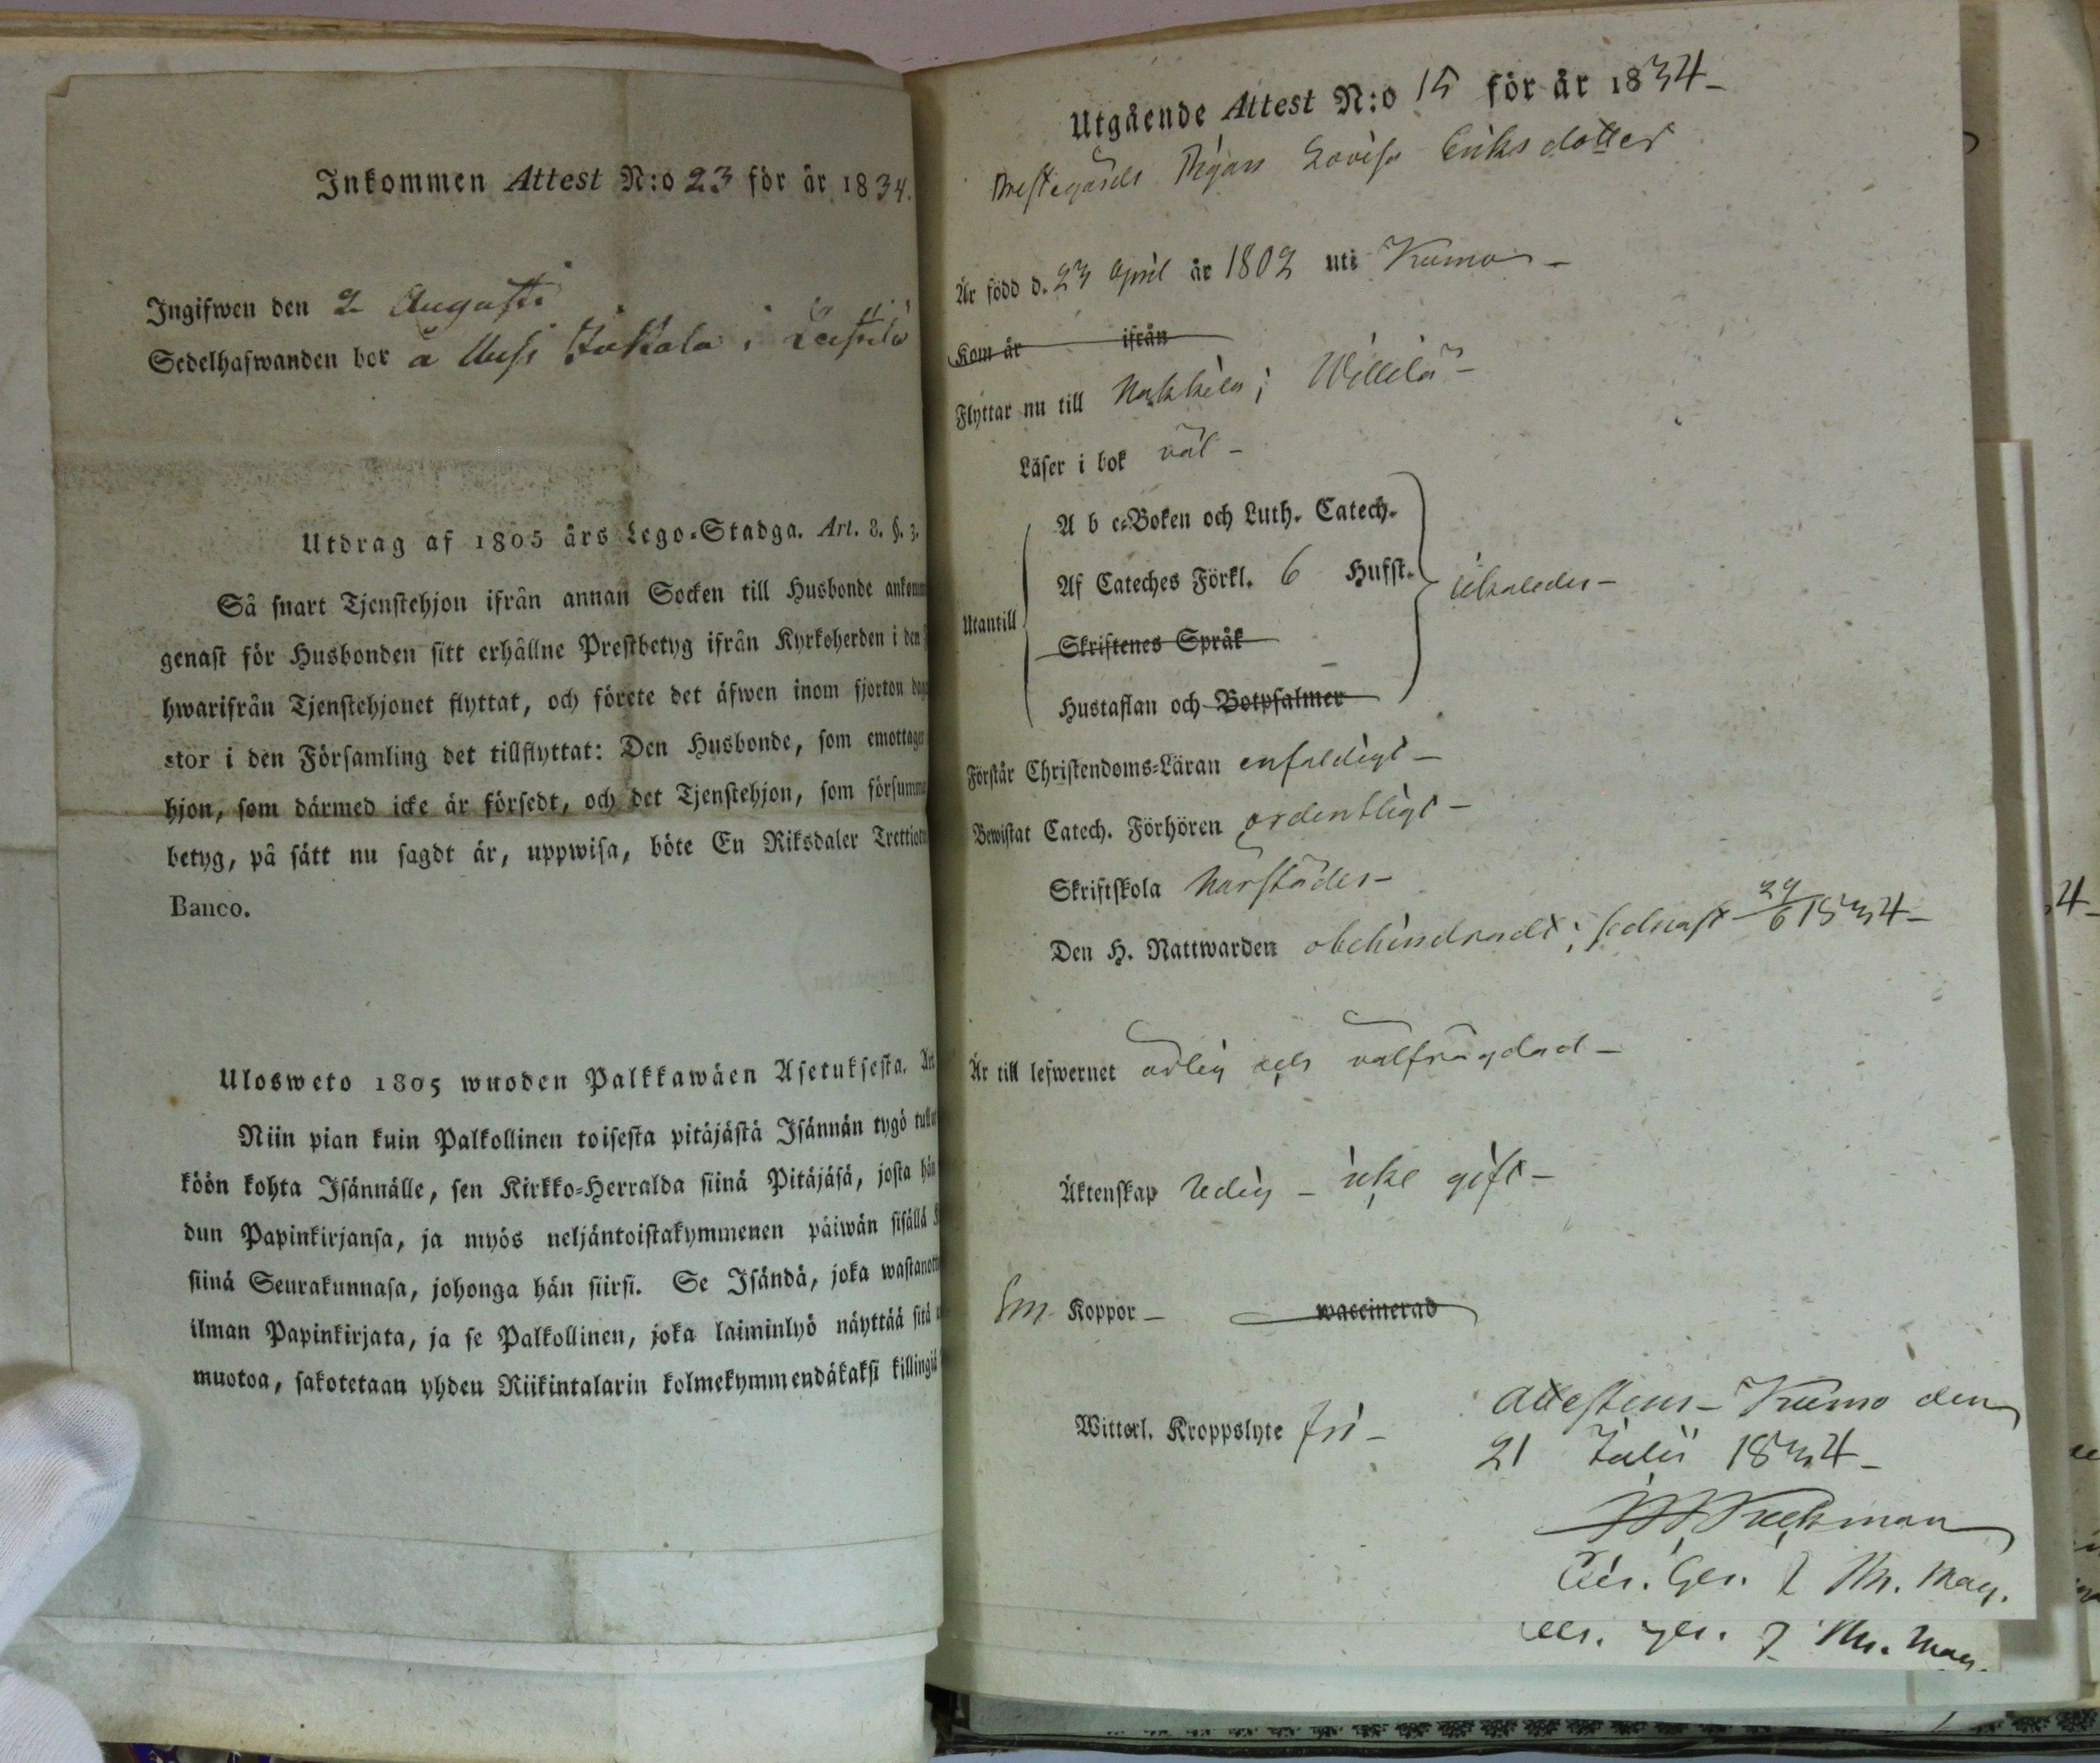 Inkommen Attest N:o 23 för år 1834.
Ingifwen den 2 Augusti
Sedelhafwanden bor å Uusi Jakala i
Utdrag af 1805 års Lego-Stadga. Art. 8. §. 3.
Så snart Tjenstehjon ifrån annan Socken till Husbonde
genast för Husbonden sitt erhållne Prestbetyg ifrån Kyrkoherden i den
hwarifrån Tjenstehjonet flyttat, och förete det äfwen inom fjorton
stor i den Församling det tillflyttat: Den Husbonde, som
hjon, som därmed icke är försedt, och det Tjenstehjon, som
betyg, på sätt nu sagdt är, uppwisa, böte En Riksdaler
Banco.
Ulosweto 1805 wuoden Palkkawäen Asetuksesta.
Niin pian kuin Palkollinen toisesta pitäjästä Isännän tygö
köön kohta Isännälle, sen Kirkko-Herralda siinä Pitäjäsä, josta
dun Papinkirjansa, ja myös neljäntoistakymmenen päiwän sisällä
siinä Seurakunnasa, johonga hän siirsi. Se Isändä, joka
ilman Papinkirjata, ja se Palkollinen, joka laiminlyö näyttää sitä
muotoa, sakotetaan yhden Riikintalarin kolmekymmendäkaksi
Utgående Attest N:o 15 för år 1834-
Prestegårds Pigan Lovisa Eriksdotter
Är född d. 23 April år 1802 uti Kumo -
Kom år ifrån
Flyttar nu till Nakkila; Willilä -
Läser i bok väl -
A b c-Boken och Luth. Catech.
Af Cateches Förkl. 6 Hufst.
Utantill
Skriftenes Språk
Hustaflan och Botpsalmer
Förstår Christendoms-Läran enfaldigt -
Bewistat Catech. Förhören ordentligt -
Skriftskola
Den H. Nattwarden obehindradt; sednast 29/6 1834-
Är till lefwernet ärlig och välfrägdad -
Äktenskap ledig - icke gift -
Koppor - waccinerad
Witterl. Kroppslyte fri -
Attesteras - Kumo den
21 Julii 1834 -